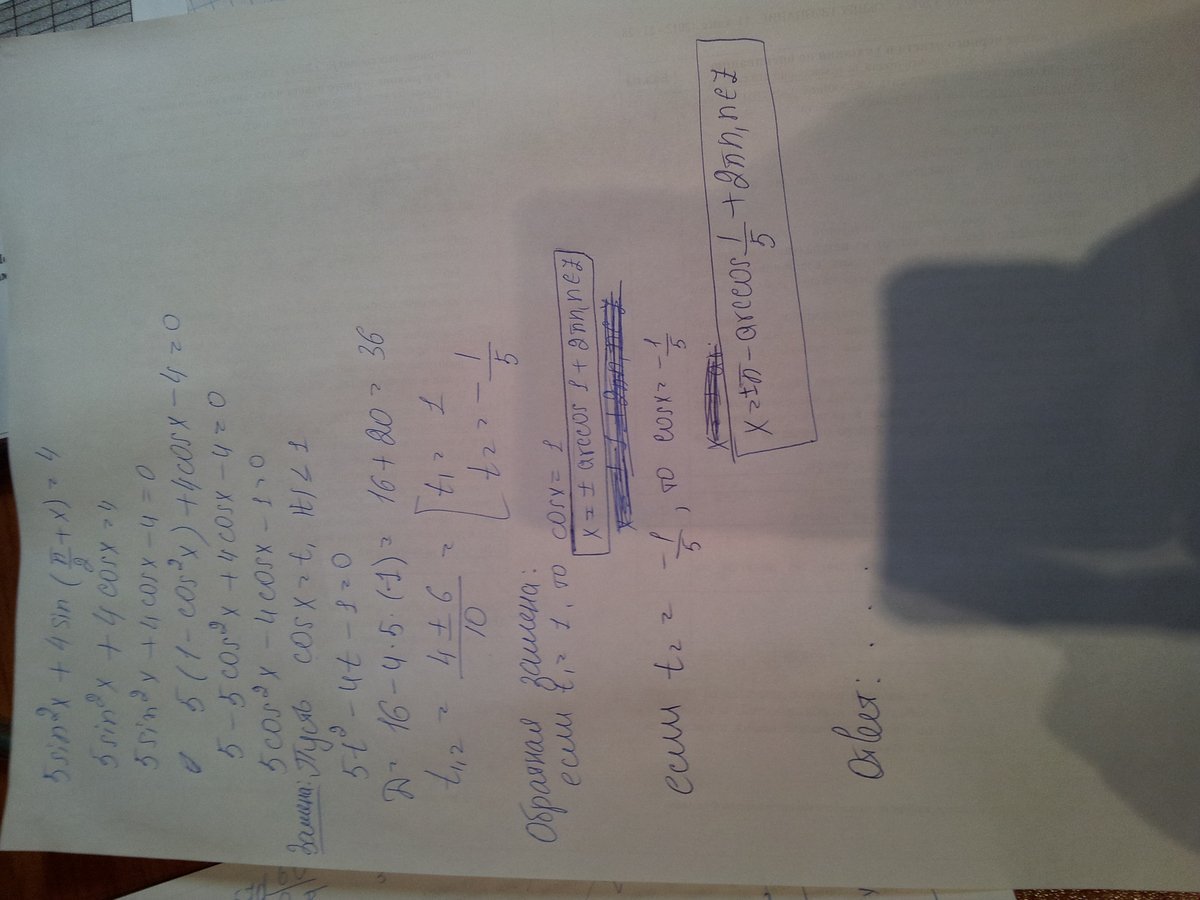 5sin²x + 4sin(π/2 + x) = 4
5sin²x + 4cosx = 4
5sin²x + 4cosx - 4 = 0
5(1 - cos²x) + 4cosx - 4 = 0
5 - 5cos²x + 4cosx - 4 = 0
5cos²x - 4cosx - 1 = 0
Замена: Пусть cosx = t, |t| ≤ 1
5t² - 4t - 1 = 0
D = 16 - 4·5·(-1) = 16 + 20 = 36
t₁,₂ = 4 ± 6 / 10 = [ t₁ = 1
t₂ = - 1/5
Обратная замена:
если t₁ = 1, то cosx = 1
x = ± arccos 1 + 2πn, n ∈ Z
если t₂ = - 1/5, то cosx = - 1/5
x = ±π - arccos 1/5 + 2πn, n ∈ Z
Ответ: . . .